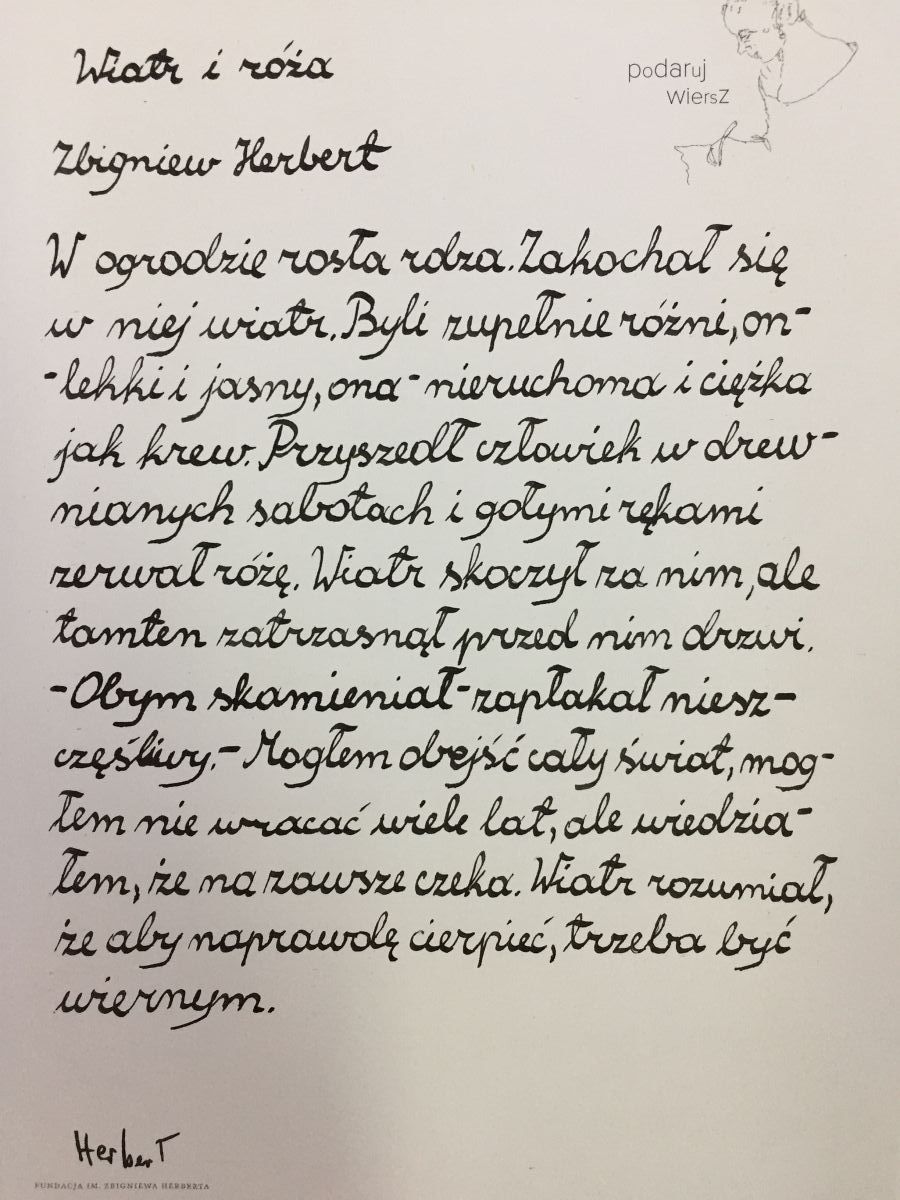 Wiatr i róża
podaruj
wiersz
Zbigniew Herbert
W ogrodzie rosła rdza. Zakochał się
w niej wiatr. Byli zupełnie różni, on-
-lekki i jasny, ona - nieruchoma i ciężka
jak krew. Przyszedł człowiek w drew-
nianych sabotach i gołymi rękami
zerwał różę. Wiatr skoczył za nim, ale
tamten zatrzasnął przed nim drzwi.
- Obym skamieniał - zapłakał niesz-
częśliwy. - Mogłem obejść cały świat, mog-
łem nie wracać wiele lat, ale wiedzia-
łem, że na zawsze czeka. Wiatr rozumiał,
że aby naprawdę cierpieć, trzeba być
wiernym.
Herbert
FUNDACJA IM. ZBIGNIEWA HERBERTA